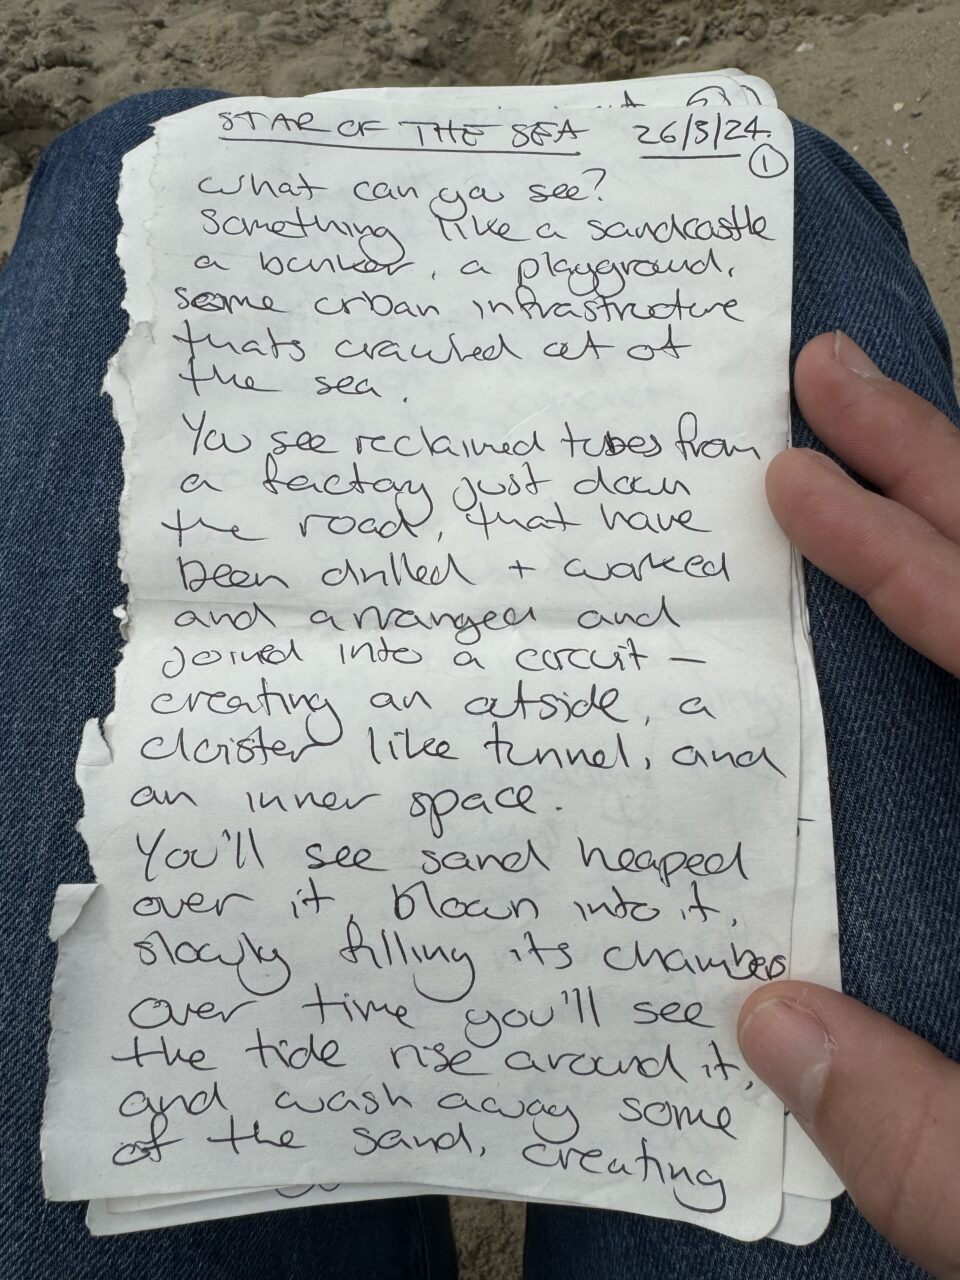 STAR OF THE SEA 26/5/24
1
What can you see?
Something like a sandcastle
a bunker, a playground,
some urban infrastructure
thats crawled out of
the sea.
You see reclaimed tubes from
a factory just down
the road, that have
been drilled + worked
and arranged and
joined into a circuit –
creating an outside, a
cloister like tunnel, and
an inner space.
You'll see sand heaped
over it, blown into it,
slowly filling its chambers
over time you'll see
the tide rise around it,
and wash away some
of the sand, creating